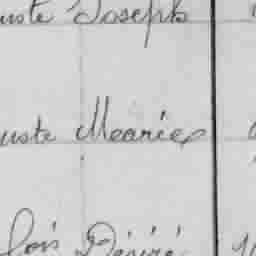 uste Joseph
uste Mearie
lois Désiré